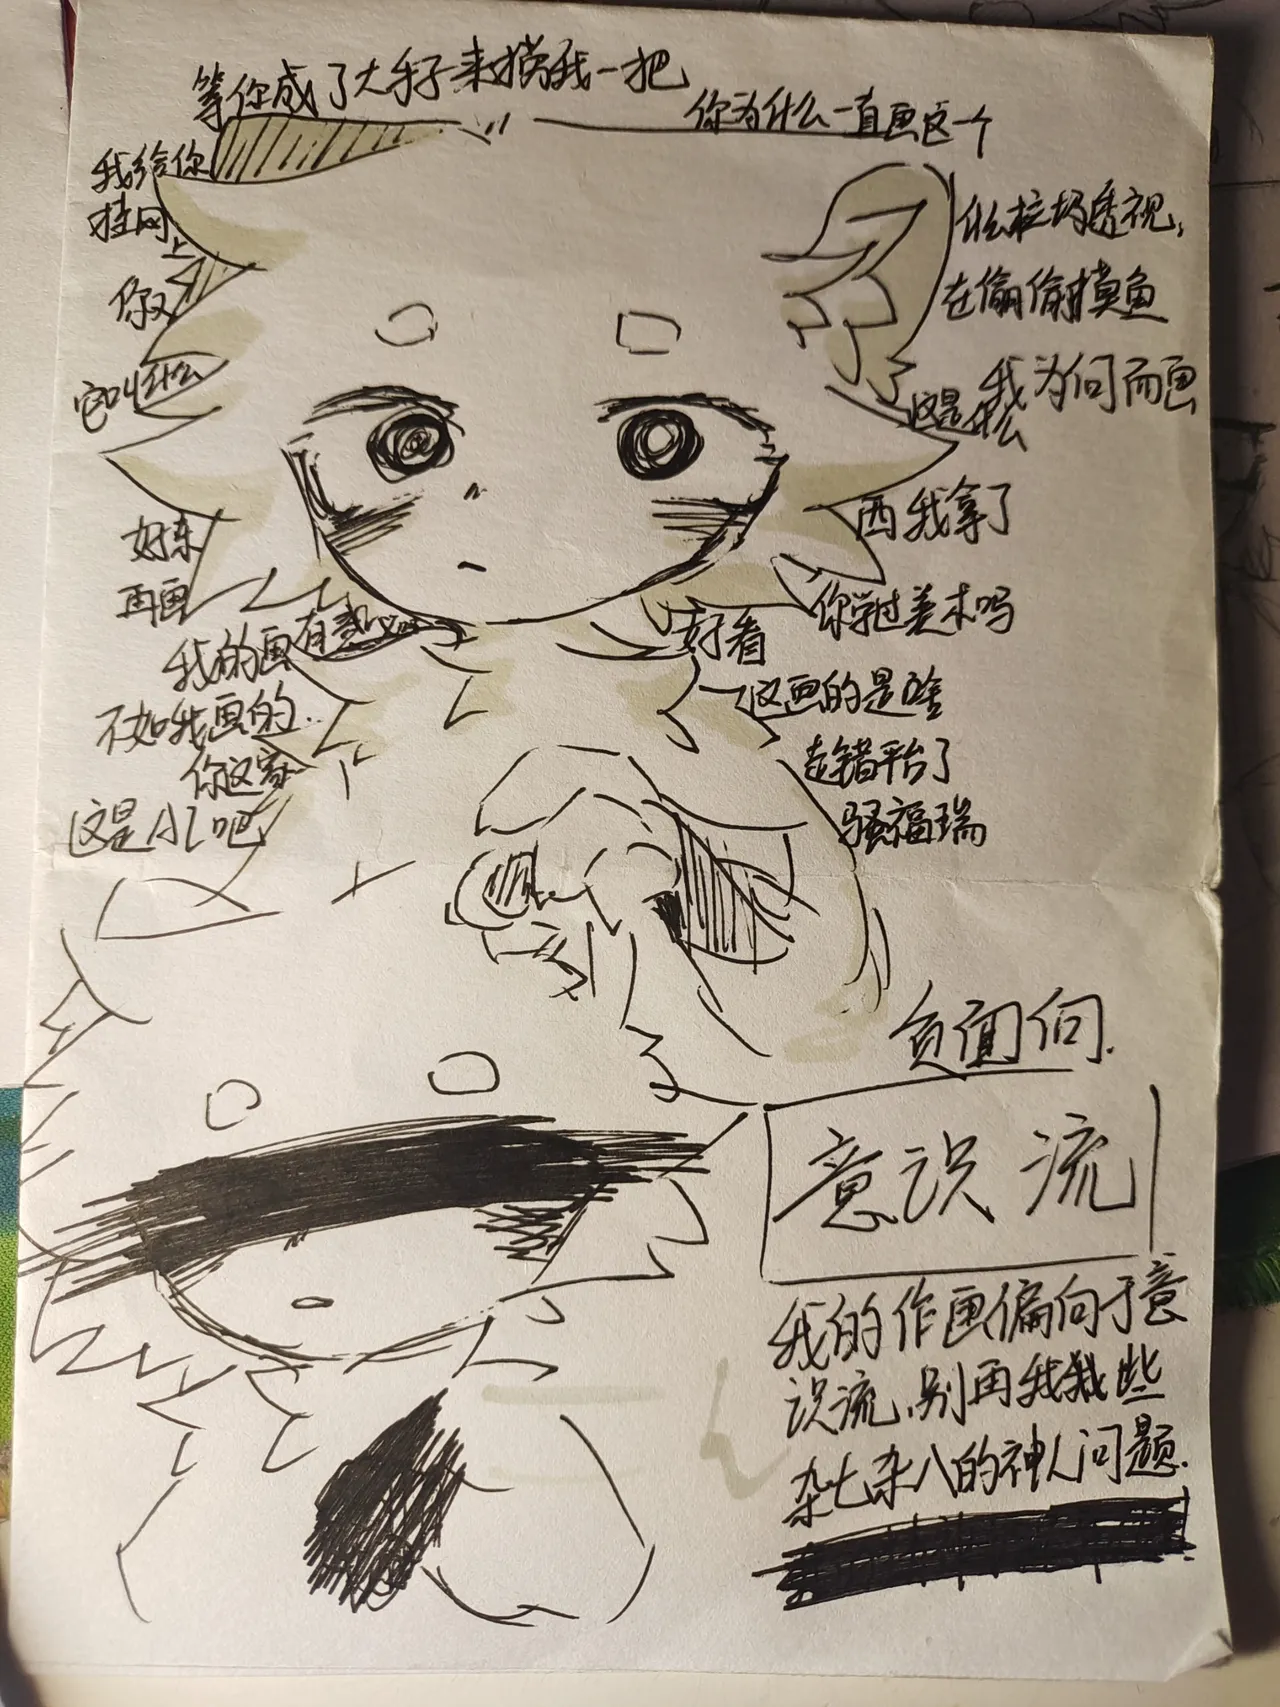 等你成了大手子来捞我一把
你为什么一直画这个
我给你
挂网
上
你又
它叫什么
什么垃圾透视,
在偷偷摸鱼
我为何而画
这是什么
好东
西我拿了
再画
你学过美术吗
我的画有
好看
不如我画的..
这画的是啥
你这家
走错平台了
这是AI吧
骚福瑞
负面向.
意识流
我的作画偏向于意
识流,别再我栽些
杂七杂八的神人问题.